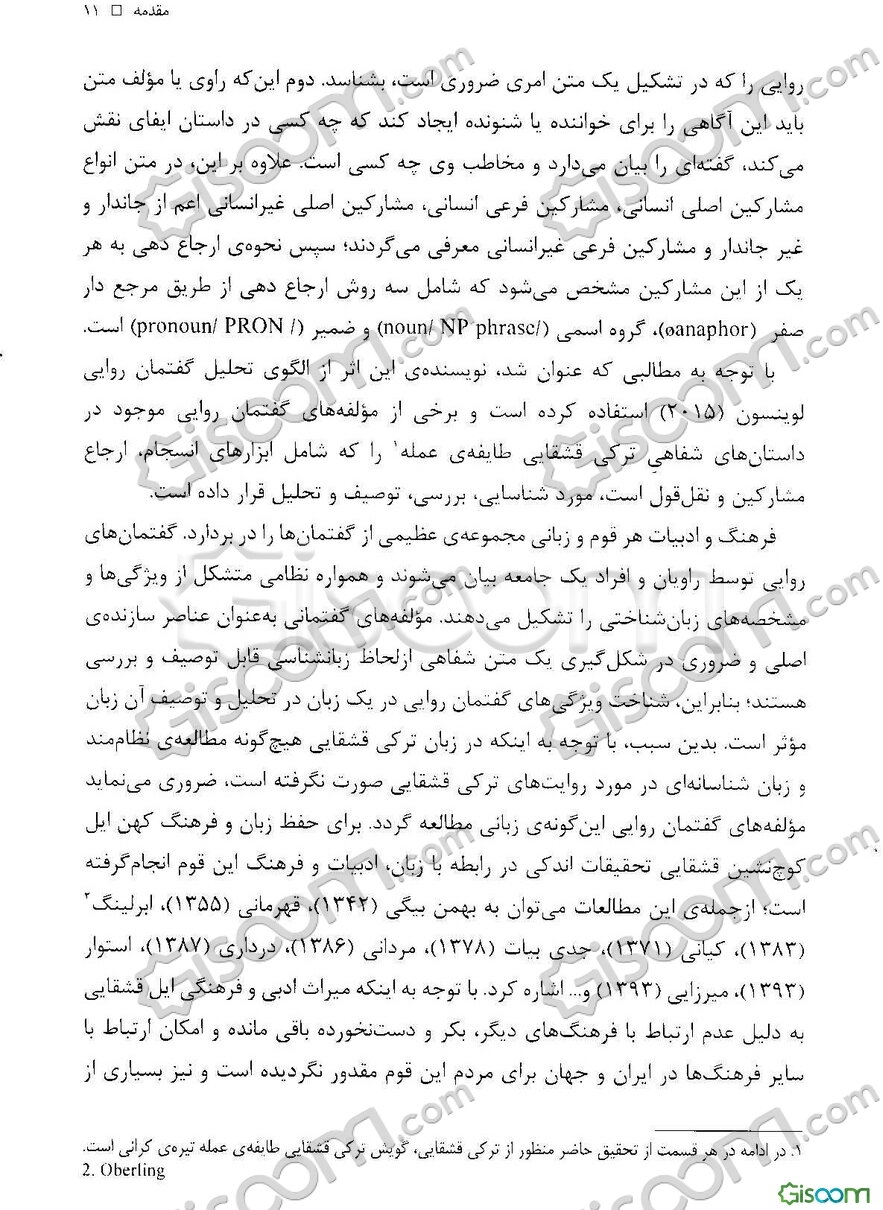 مقدمه □ ۱۱
روایی را که در تشکیل یک متن امری ضروری است، بشناسد. دوم این‌که راوی یا مؤلف متن
باید این آگاهی را برای خواننده یا شنونده ایجاد کند که چه کسی در داستان ایفای نقش
می‌کند، گفته‌ای را بیان می‌دارد و مخاطب وی چه کسی است. علاوه بر این، در متن انواع
مشارکین اصلی انسانی، مشارکین فرعی انسانی، مشارکین اصلی غیرانسانی اعم از جاندار و
غیر جاندار و مشارکین فرعی غیرانسانی معرفی می‌گردند؛ سپس نحوه‌ی ارجاع دهی به هر
یک از این مشارکین مشخص می‌شود که شامل سه روش ارجاع دهی از طریق مرجع دار
صفر (øanaphor)، گروه اسمی (noun/ NP phrase/) و ضمیر (pronoun/ PRON /) است.
با توجه به مطالبی که عنوان شد، نویسنده‌ی این اثر از الگوی تحلیل گفتمان روایی
لوینسون (۲۰۱۵) استفاده کرده است و برخی از مؤلفه‌های گفتمان روایی موجود در
داستان‌های شفاهیِ ترکی قشقایی طایفه‌ی عمله۱ را که شامل ابزارهای انسجام، ارجاع
مشارکین و نقل‌قول است، مورد شناسایی، بررسی، توصیف و تحلیل قرار داده است.
فرهنگ و ادبیات هر قوم و زبانی مجموعه‌ی عظیمی از گفتمان‌ها را در بردارد. گفتمان‌های
روایی توسط راویان و افراد یک جامعه بیان می‌شوند و همواره نظامی متشکل از ویژگی‌ها و
مشخصه‌های زبان‌شناختی را تشکیل می‌دهند. مؤلفه‌های گفتمانی به‌عنوان عناصر سازنده‌ی
اصلی و ضروری در شکل‌گیری یک متن شفاهی ازلحاظ زبانشناسی قابل توصیف و بررسی
هستند؛ بنابراین، شناخت ویژگی‌های گفتمان روایی در یک زبان در تحلیل و توصیف آن زبان
مؤثر است. بدین سبب، با توجه به اینکه در زبان ترکی قشقایی هیچ‌گونه مطالعه‌ی نظام‌مند
و زبان شناسانه‌ای در مورد روایت‌های ترکی قشقایی صورت نگرفته است، ضروری می‌نماید
مؤلفه‌های گفتمان روایی این‌گونه‌ی زبانی مطالعه گردد. برای حفظ زبان و فرهنگ کهن ایل
کوچ‌نشین قشقایی تحقیقات اندکی در رابطه با زبان، ادبیات و فرهنگ این قوم انجام‌گرفته
است؛ ازجمله‌ی این مطالعات می‌توان به بهمن بیگی (۱۳۴۲)، قهرمانی (۱۳۵۵)، ابرلینگ۲
(۱۳۸۳)، کیانی (۱۳۷۱)، جدی بیات (۱۳۷۸)، مردانی (۱۳۸۶)، درداری (۱۳۸۷)، استوار
(۱۳۹۳)، میرزایی (۱۳۹۳) و... اشاره کرد. با توجه به اینکه میراث ادبی و فرهنگی ایل قشقایی
به دلیل عدم ارتباط با فرهنگ‌های دیگر، بکر و دست‌نخورده باقی مانده و امکان ارتباط با
سایر فرهنگ‌ها در ایران و جهان برای مردم این قوم مقدور نگردیده است و نیز بسیاری از
۱. در ادامه در هر قسمت از تحقیق حاضر منظور از ترکی قشقایی، گویش ترکی قشقایی طایفه‌ی عمله تیره‌ی کرانی است.
2. Oberling
Gisoom